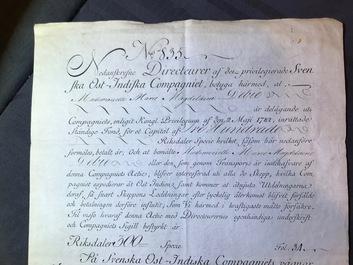 No 835.
Nedanskrifne Directeurer af det privilegierade Svenska
Ost-Indiska Compagniet, betyga härmed, at
Mademoiselle Marie Magdelaine Debrie
är delägande uti
Compagniets, enligit Kongl. Privilegium af den 2 Maji 1782, inrättade
Ständige Fond, för et Capital af Tre Hundrade
Riksdaler Specie hvilket, såsom här nedanföre
förmäles, betalt är; och at bemälte Mademoiselle Marie Magdelaine
Debrie eller den, som genom Transport är innehafvare af
denna Compagniets Actie, blifver interesserad uti alla de Skepp, hvilka Compagniet
expedierar åt Ost Indien, samt kommer at åtnjuta Utdelningarne,
deraf, så snart Skeppens Laddningar efter lyckelig återkomst blifvit försålde
och betalningen derföre influtit; Som Vi härmed i kraftigaste måtto försäkre.
Til viss hvaraf denna Actie med Directeurernes egenhändiga underskrift
och Compagniets Sigill bestyrkt är.
Riksdaler 300 Specie. Fol. 34.
På Svenska Ost-Indiska Compagniets vägnar